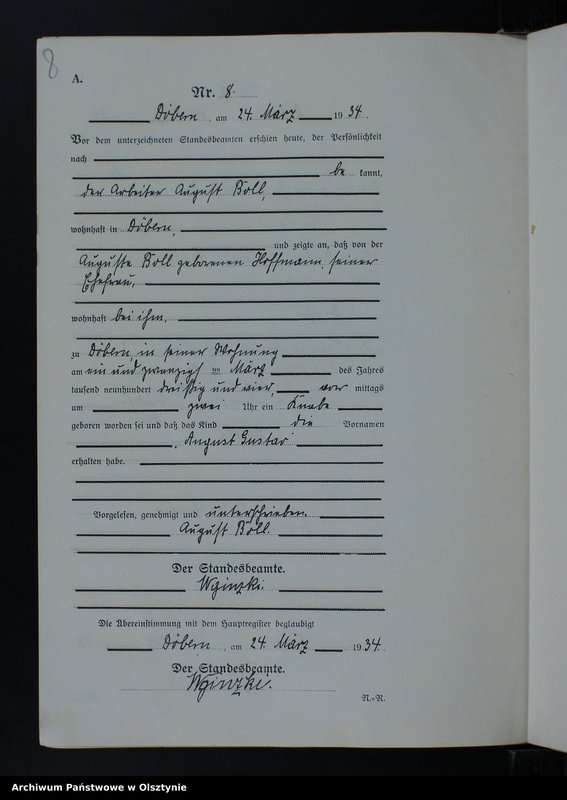 8
A.
Nr. 8.
Döbern, am 24. März 1934.
Vor dem unterzeichneten Standesbeamten erschien heute, der Persönlichkeit
nach
be kannt,
der Arbeiter August Böll,
wohnhaft in Döbern,
und zeigte an, daß von der
Auguste Böll geborenen Hoffmann, seiner
Ehefrau,
wohnhaft bei ihm,
zu Döbern, in seiner Wohnung
am ein und zwanzigsten März des Jahres
tausend neunhundert dreißig und vier, vor mittags
um zwei Uhr ein Knabe
geboren worden sei und daß das Kind die Vornamen
August Gustav
erhalten habe.
Vorgelesen, genehmigt und unterschrieben.
August Böll.
Der Standesbeamte.
Die Übereinstimmung mit dem Hauptregister beglaubigt
Döbern, am 24. März 1934.
Der Standesbeamte.
N.-R.
Archiwum Państwowe w Olsztynie